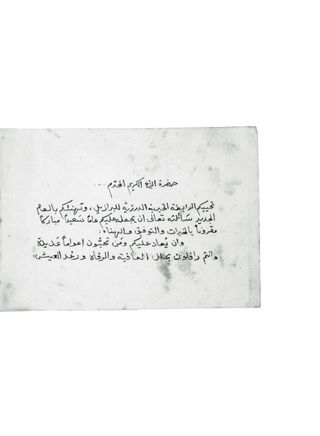 حضرة الأخ الكريم المحترم ...
تحييكم الرابطة الخيرية الدرزية للبرازيل، وتهنئكم بالعام
الجديد سائلته تعالى ان يجعله عليكم عامًا سعيدًا مباركًا
مقرونًا بالخيرات والتوفيق والهناء.
وان يُعاد عليكم ومَن تحبّون اعوامًا عديدة
وانتم رافلون بحلل العافية والرفاه ورغد العيش.